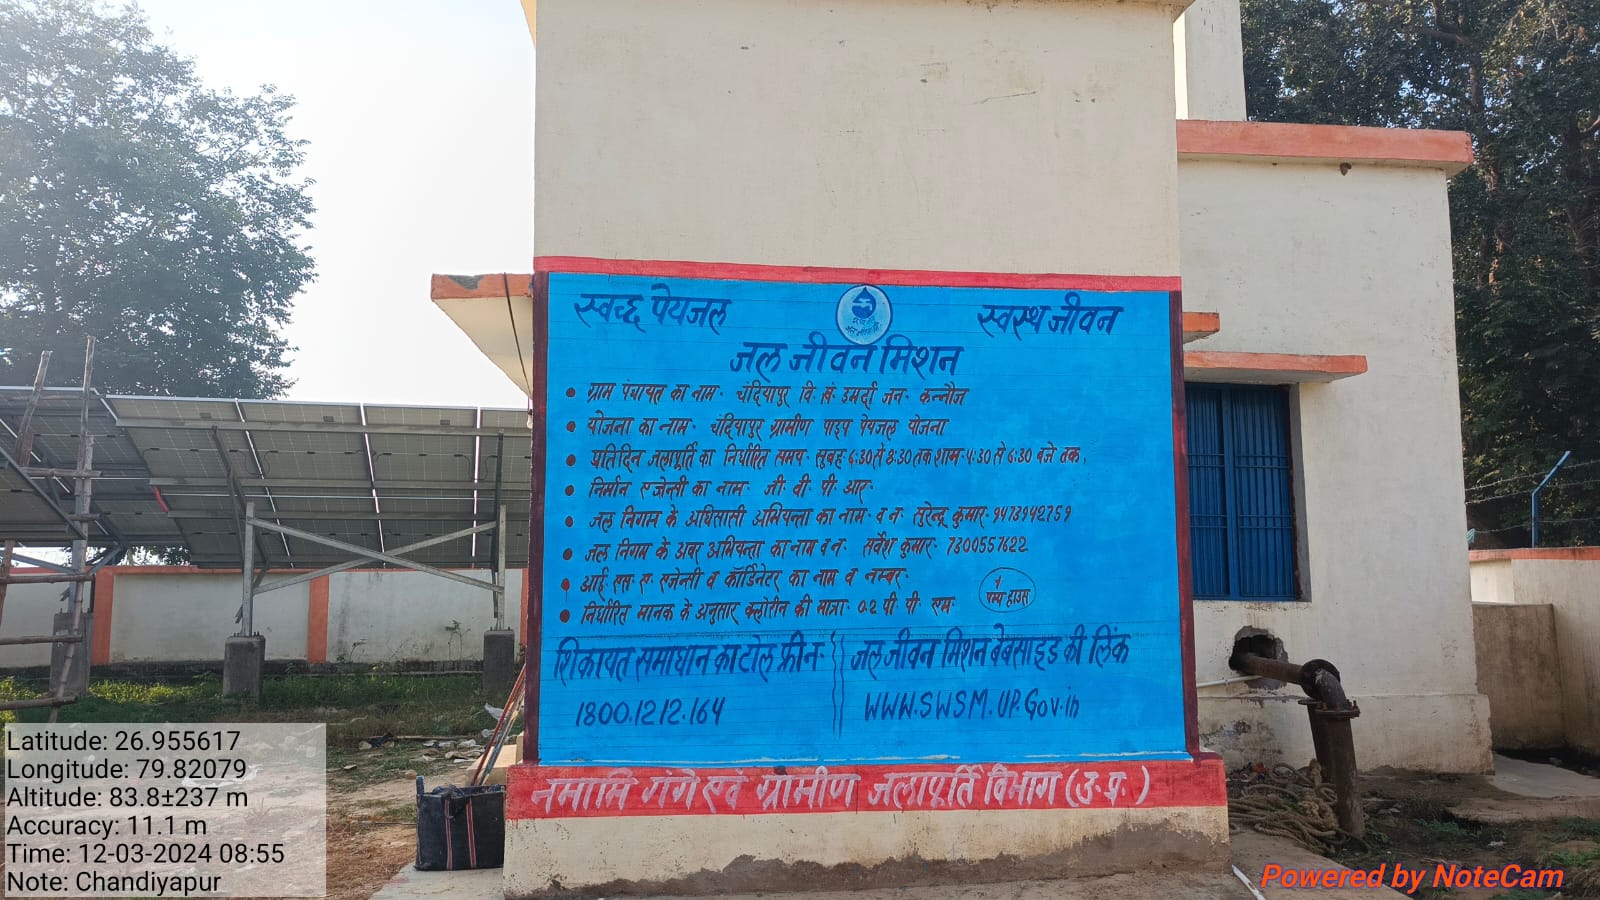 स्वच्छ पेयजल
स्वस्थ जीवन
जल जीवन मिशन
• ग्राम पंचायत का नाम- चंदियापुर वि. खं. उमर्दा जन- कन्नौज
• योजना का नाम- चंदियापुर ग्रामीण पाइप पेयजल योजना
• प्रतिदिन जलापूर्ति का निर्धारित समय- सुबह 6:30 से 8:30 तक शाम- 4:30 से 6:30 बजे तक.
• निर्मान एजेन्सी का नाम- जी. वी. पी. आर.
• जल निगम के अधिसासी अभियन्ता का नाम- व न- सुरेन्द्र कुमार- 9473942759
• जल निगम के अवर अभियन्ता का नाम व न- सर्वेश कुमार- 7300557622
• आई. एस. ए. एजेन्सी व कॉर्डिनेटर का नाम व नम्बर-
• निर्धारित मानक के अनुसार क्लोरीन की मात्रा- 0.2 पी. पी. एम.
पम्प हाउस
शिकायत समाधान का टोल फ्री न-
1800.1212.164
जल जीवन मिशन बेबसाइड की लिंक
WWW.SWSM.UP.Gov.in
नमामि गंगे एवं ग्रामीण जलापूर्ति विभाग (उ.प्र.)
Latitude: 26.955617
Longitude: 79.82079
Altitude: 83.8±237 m
Accuracy: 11.1 m
Time: 12-03-2024 08:55
Note: Chandiyapur
Powered by NoteCam